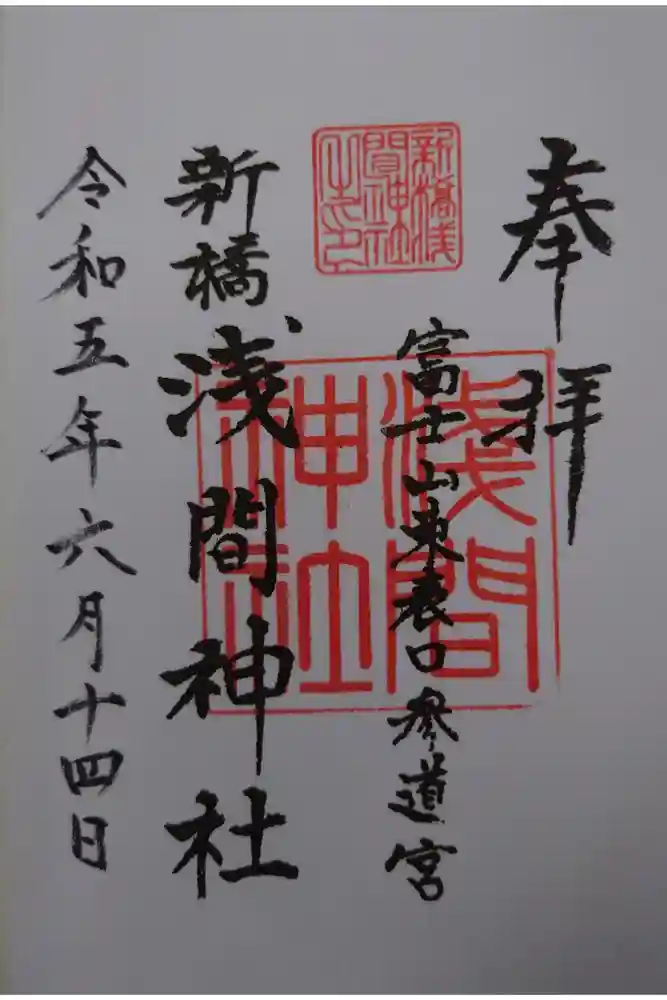 奉拝
富士山東表口参道宮
新橋浅間神社
令和五年六月十四日
新橋浅
間神社
之印
浅間
神社